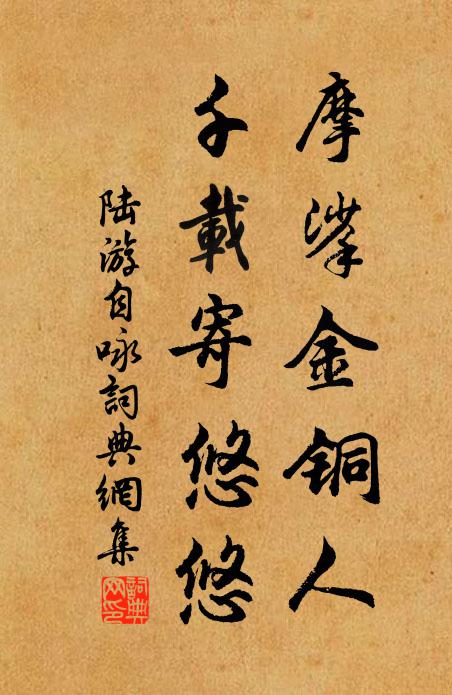 摩挲金铜人
千載寄悠悠
陆游自咏詞典網集
詞典
网印